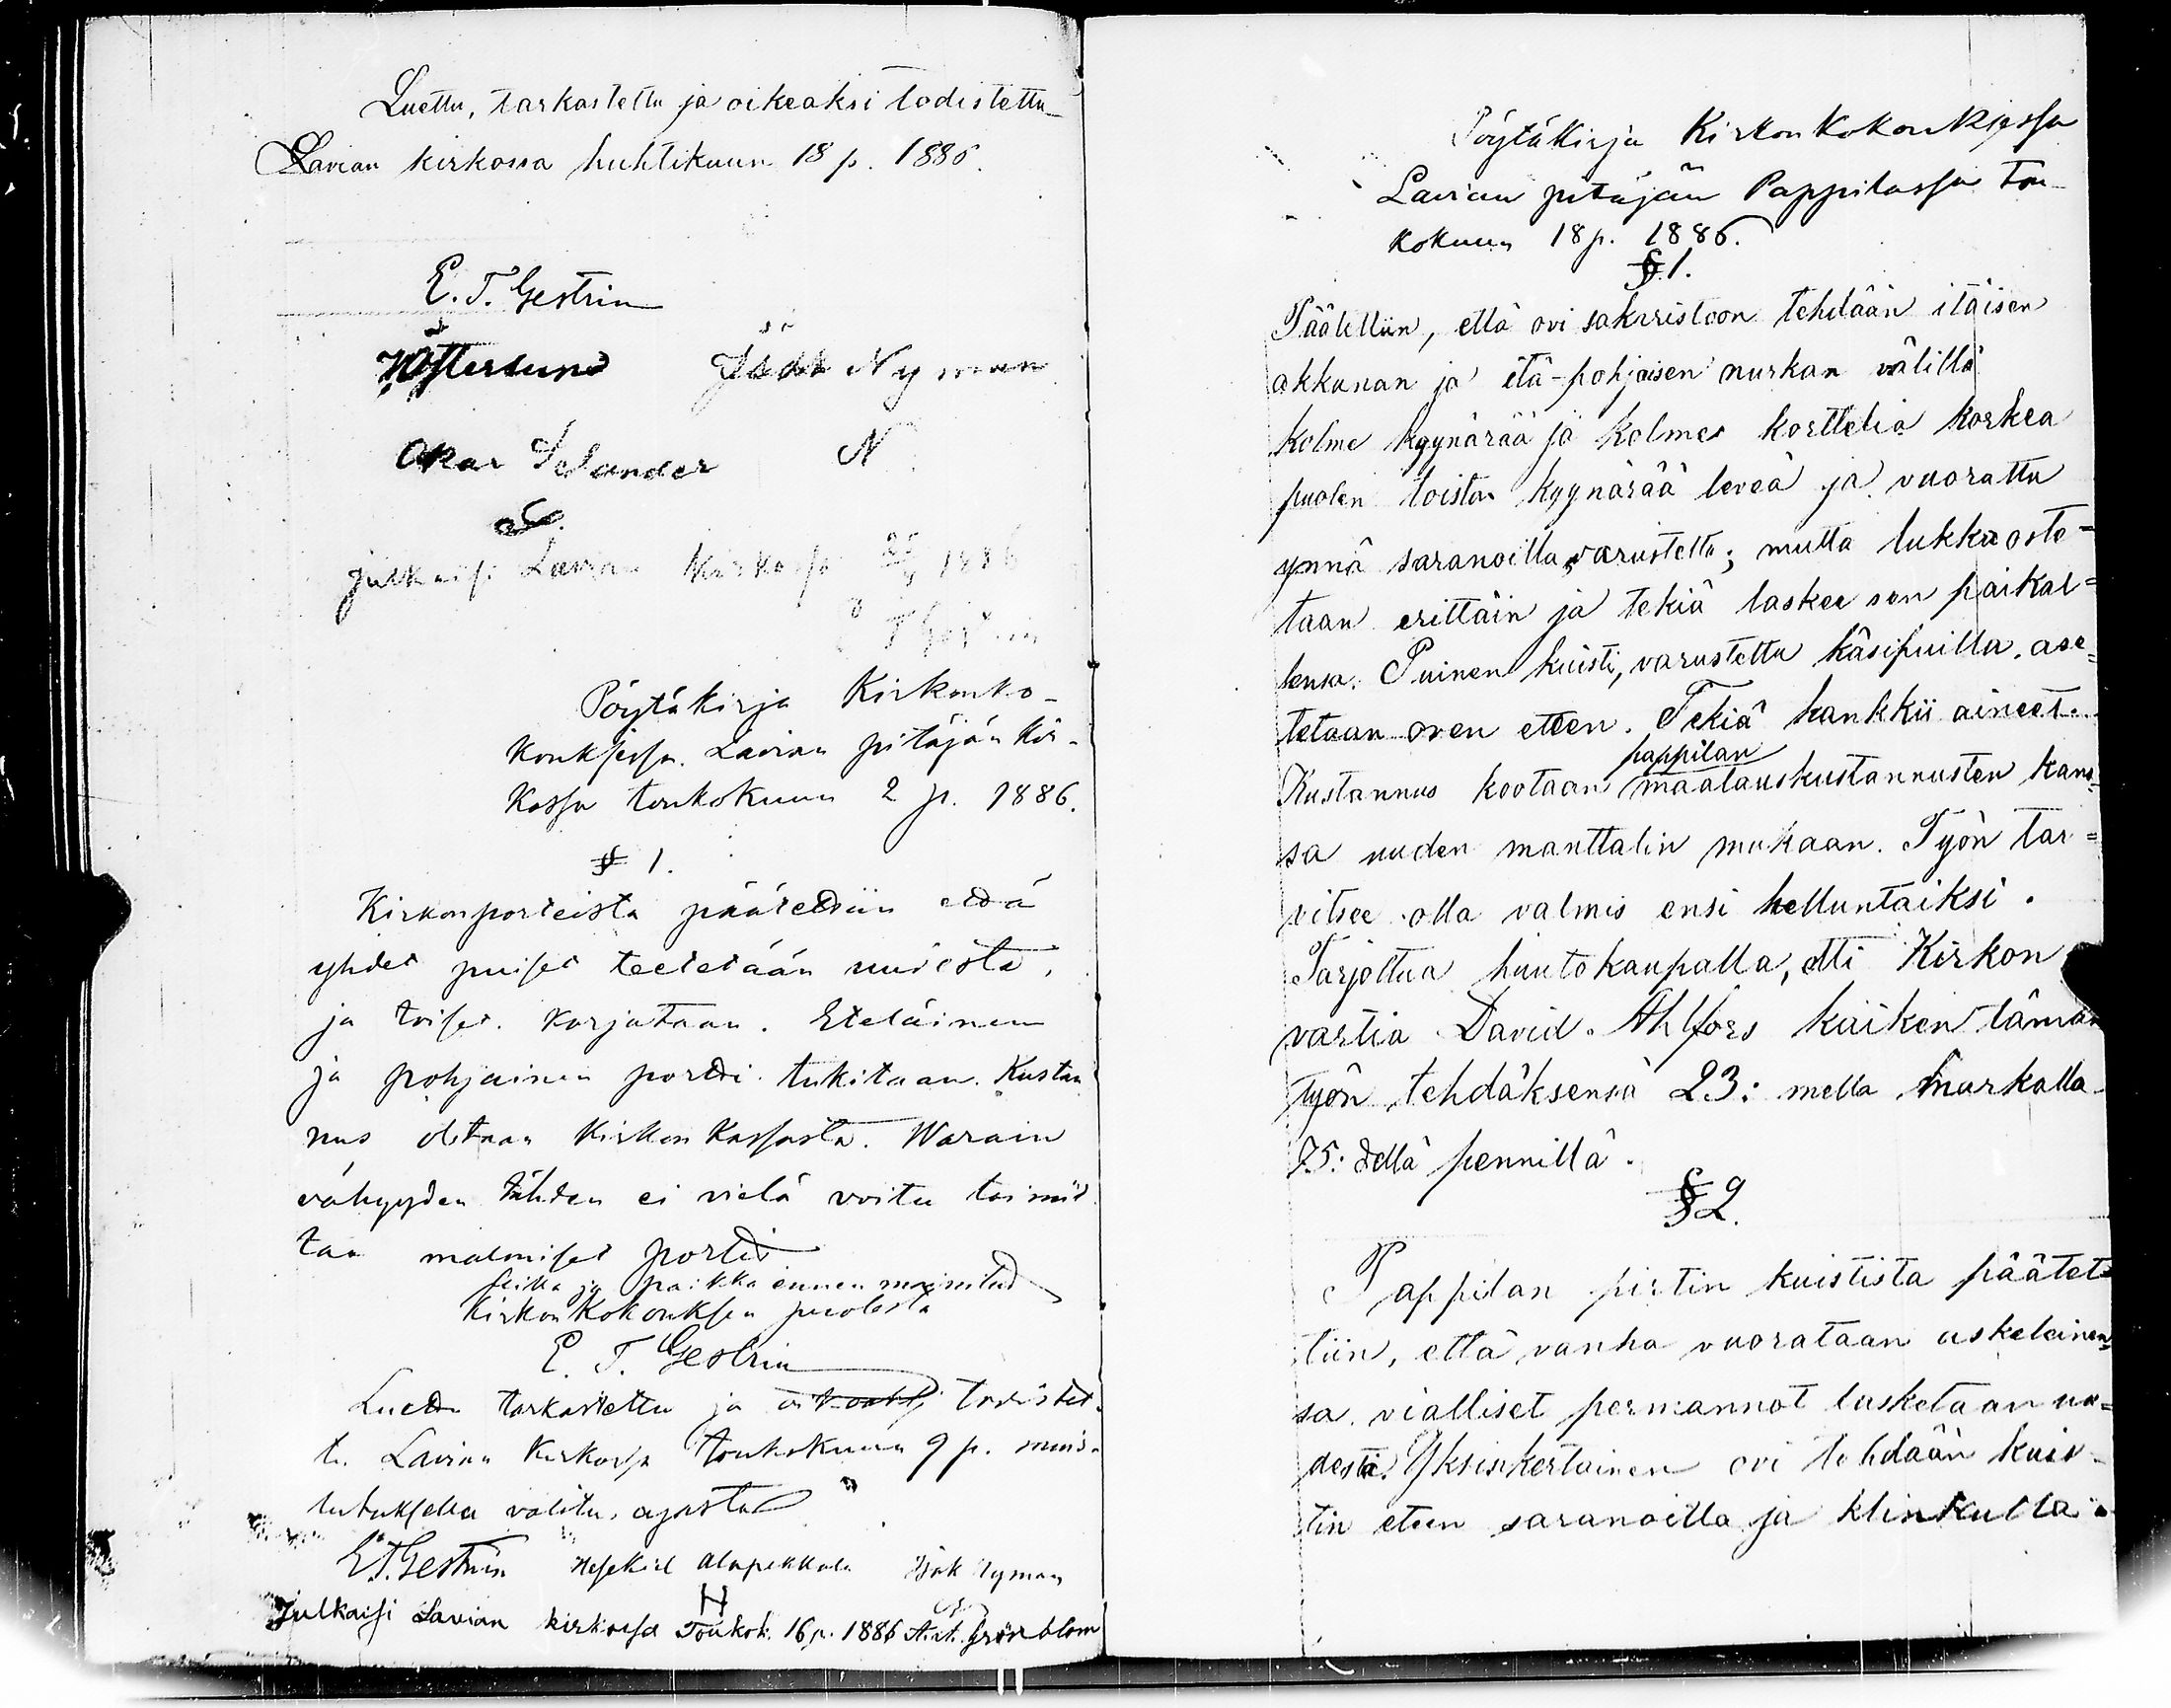 Luettu, tarkastettu ja oikeaksi todistettu
Lavian kirkossa huhtikuun 18 p. 1886.
E. T. Gestrin
Nyman
Okar Selander
N
julkaisi Lavian Kirkossa 1886
Pöytäkirja Kirkonko-
kouksessa Lavian pitäjän Kir-
kossa toukokuun 2 p. 1886.
§ 1.
Kirkonporteista päätettiin että
yhdet puiset teetetään uudesta,
ja toiset korjataan. Eteläinen
ja pohjainen portti tukitaan. Kustan
nus otetaan Kirkon Kassasta. Warain
vähyyden tähden ei vielä voitu toimit
taa malmiset portit
Aika ja paikka ennen mainitut
Kirkon Kokouksen puolesta
E. T. Gestrin
Luettu tarkastettu ja oikeaksi todistet-
tu Lavian Kirkossa toukokuun 9 p. muis-
tutuksella valitus ajasta
E. T. Gestrin Hesekiel Alapekkala Isak Nyman
H
Julkaisi Lavian kirkossa Toukok. 16 p. 1886 Grönblom
Pöytäkirja Kirkonkokouksessa
Lavian pitäjän Pappilassa Tou-
kokuun 18 p. 1886.
§ 1.
Päätettiin, että ovi sakaristoon tehdään itäisen
akkunan ja itä-pohjaisen nurkan välillä
kolme kyynärää ja kolmes korttelia korkea
puolen toista kyynärää leveä ja vuorattu
ynnä saranoilla varustettu; mutta lukku oste=
taan erittäin ja tekiä laskee sen paikal=
lensa. Puinen kuisti, varustettu käsipuilla, ase=
tetaan oven eteen. Tekiä hankkii aineet.
pappilan
Kustannus kootaan maalauskustannusten kans=
sa uuden manttalin mukaan. Työn tar=
vitsee olla valmis ensi helluntaiksi.
Tarjottua huutokaupalla, otti Kirkon
vartia David Ahlfors kaiken tämän
työn tehdäksensä 23: mella markalla
75: dellä pennillä.
§ 2.
Pappilan pirtin kuistista päätet=
tiin, että vanha vuorataan askeleinen=
sa, vialliset permannot lasketaan uu=
desta. Yksinkertainen ovi tehdään kuis-
tin eteen saranoilla ja klinkulla.